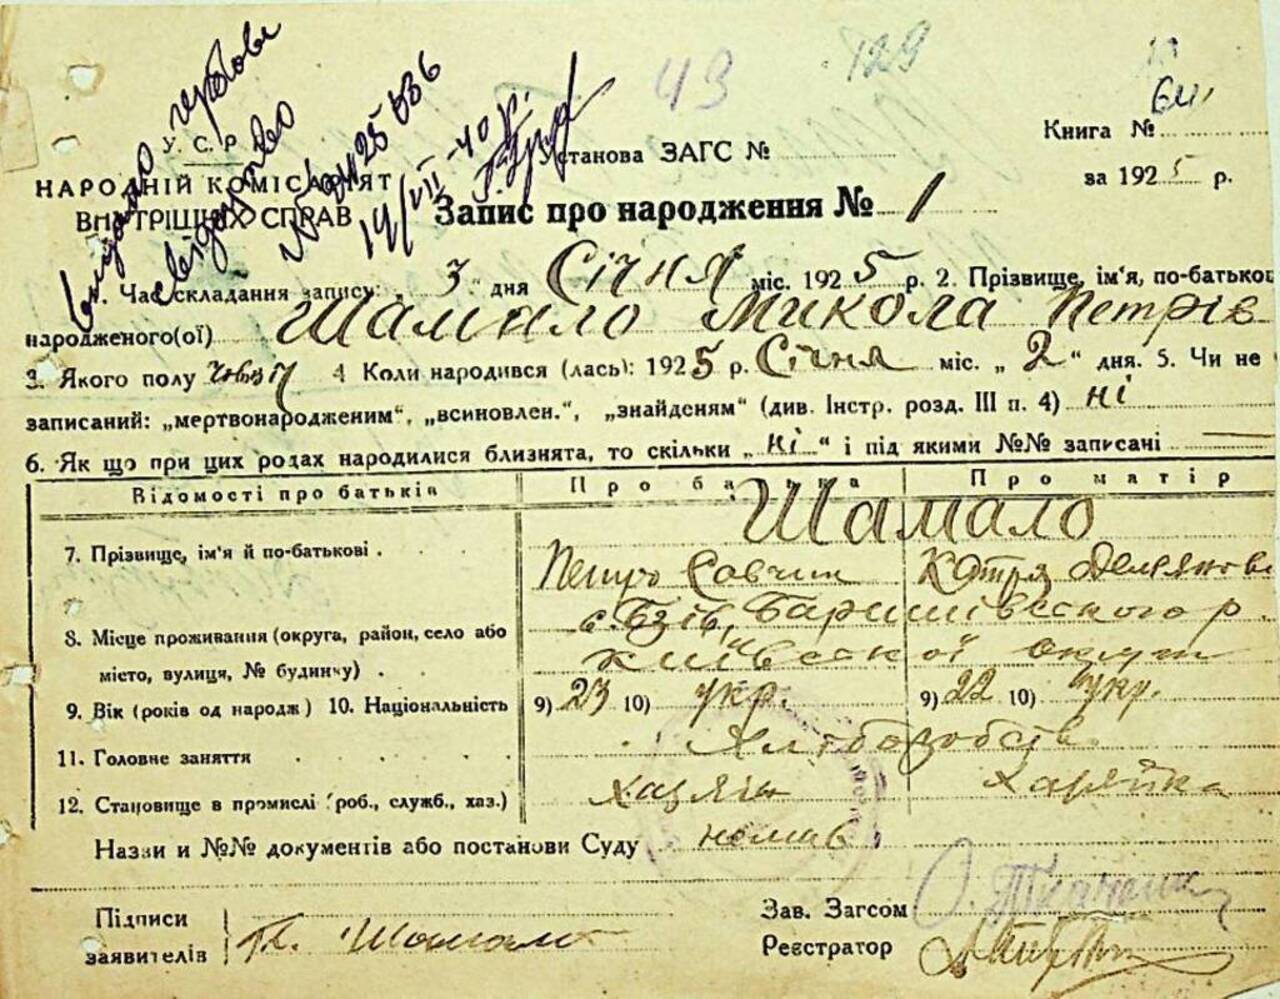 43 129
64
Видано гербове
свідоцтво
19/VII-40 р.
У. С. Р.
НАРОДНІЙ КОМІСАРІЯТ
ВНУТРІШНІХ СПРАВ
Установа ЗАГС №
Книга №
за 1925 р.
Запис про народження № 1
1. Час складання запису: 3 дня Січня міс. 1925 р. 2. Прізвище, ім'я, по-батькові
народженого(ої) Шамало Микола Петрів
3. Якого полу 4 Коли народився (лась): 1925 р. Січня міс. „ 2 “ дня. 5. Чи не
записаний: „мертвонародженим“, „всиновлен.“, „знайденям“ (див. Інстр. розд. III п. 4) ні
6. Як що при цих родах народилися близнята, то скільки „ ні “ і під якими №№ записані —
Відомості про батьків Про батька Про матір
Шамало
7. Прізвище, ім'я й по-батькові . Петро Савчин Котря
с. Бзів, Баришівського р.
8. Місце проживання (округа, район, село або
місто, вулиця, № будинку) . Київської округи
9. Вік (років од народж) 10. Національність 9) 23 10) укр. 9) 22 10) укр.
11. Головне заняття Хліборобств.
12. Становище в промислі (роб., служб., хаз.) хазяїн хазяйка
Назви и №№ документів або постанови Суду немає
Підписи
заявителів Шамало
Зав. Загсом
Реєстратор